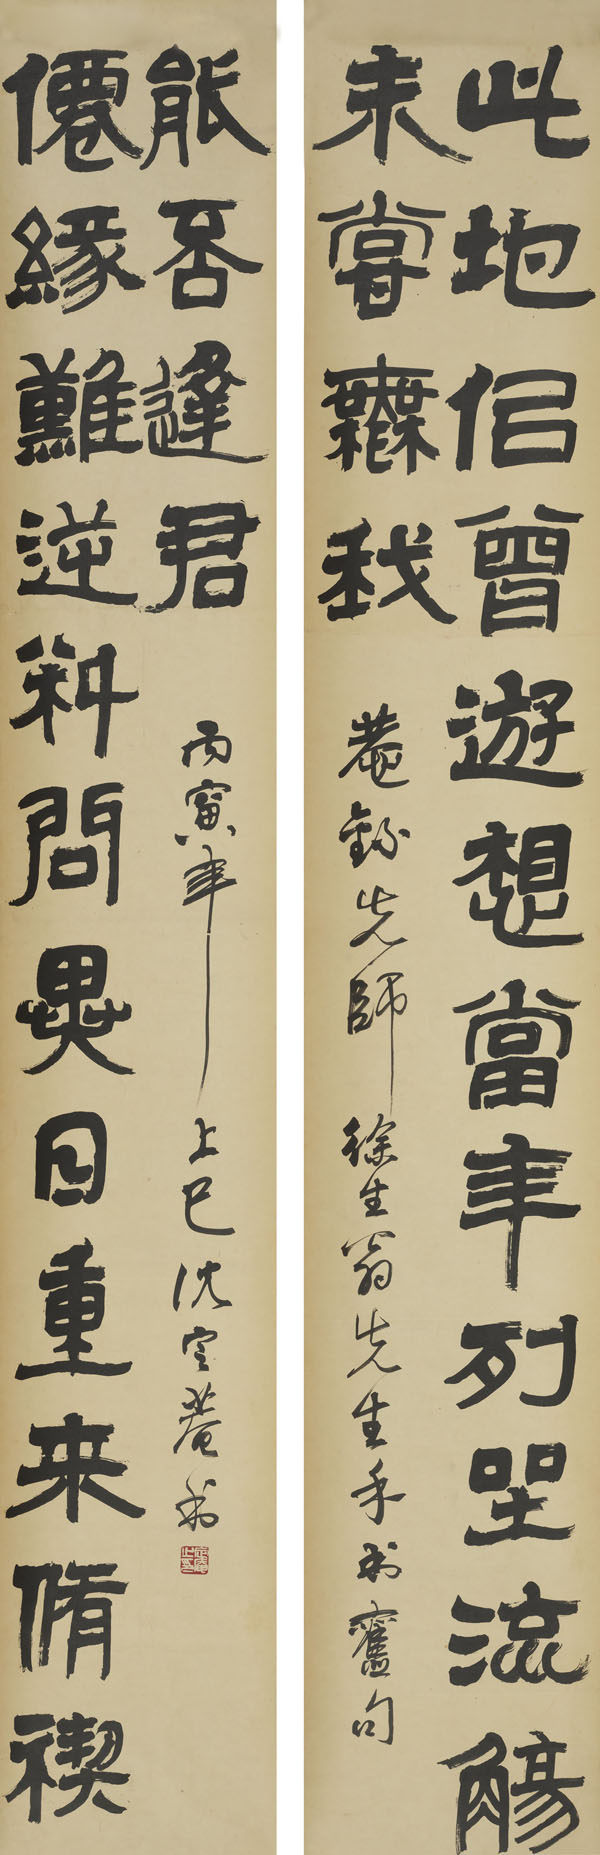 此地佀曾遊想當年列坐流觴
未甞無我
菴錄先師徐生翁先生手書舊句
僊緣難逆料問異日重来脩禊
能否逢君
丙寅年上巳沈定菴書